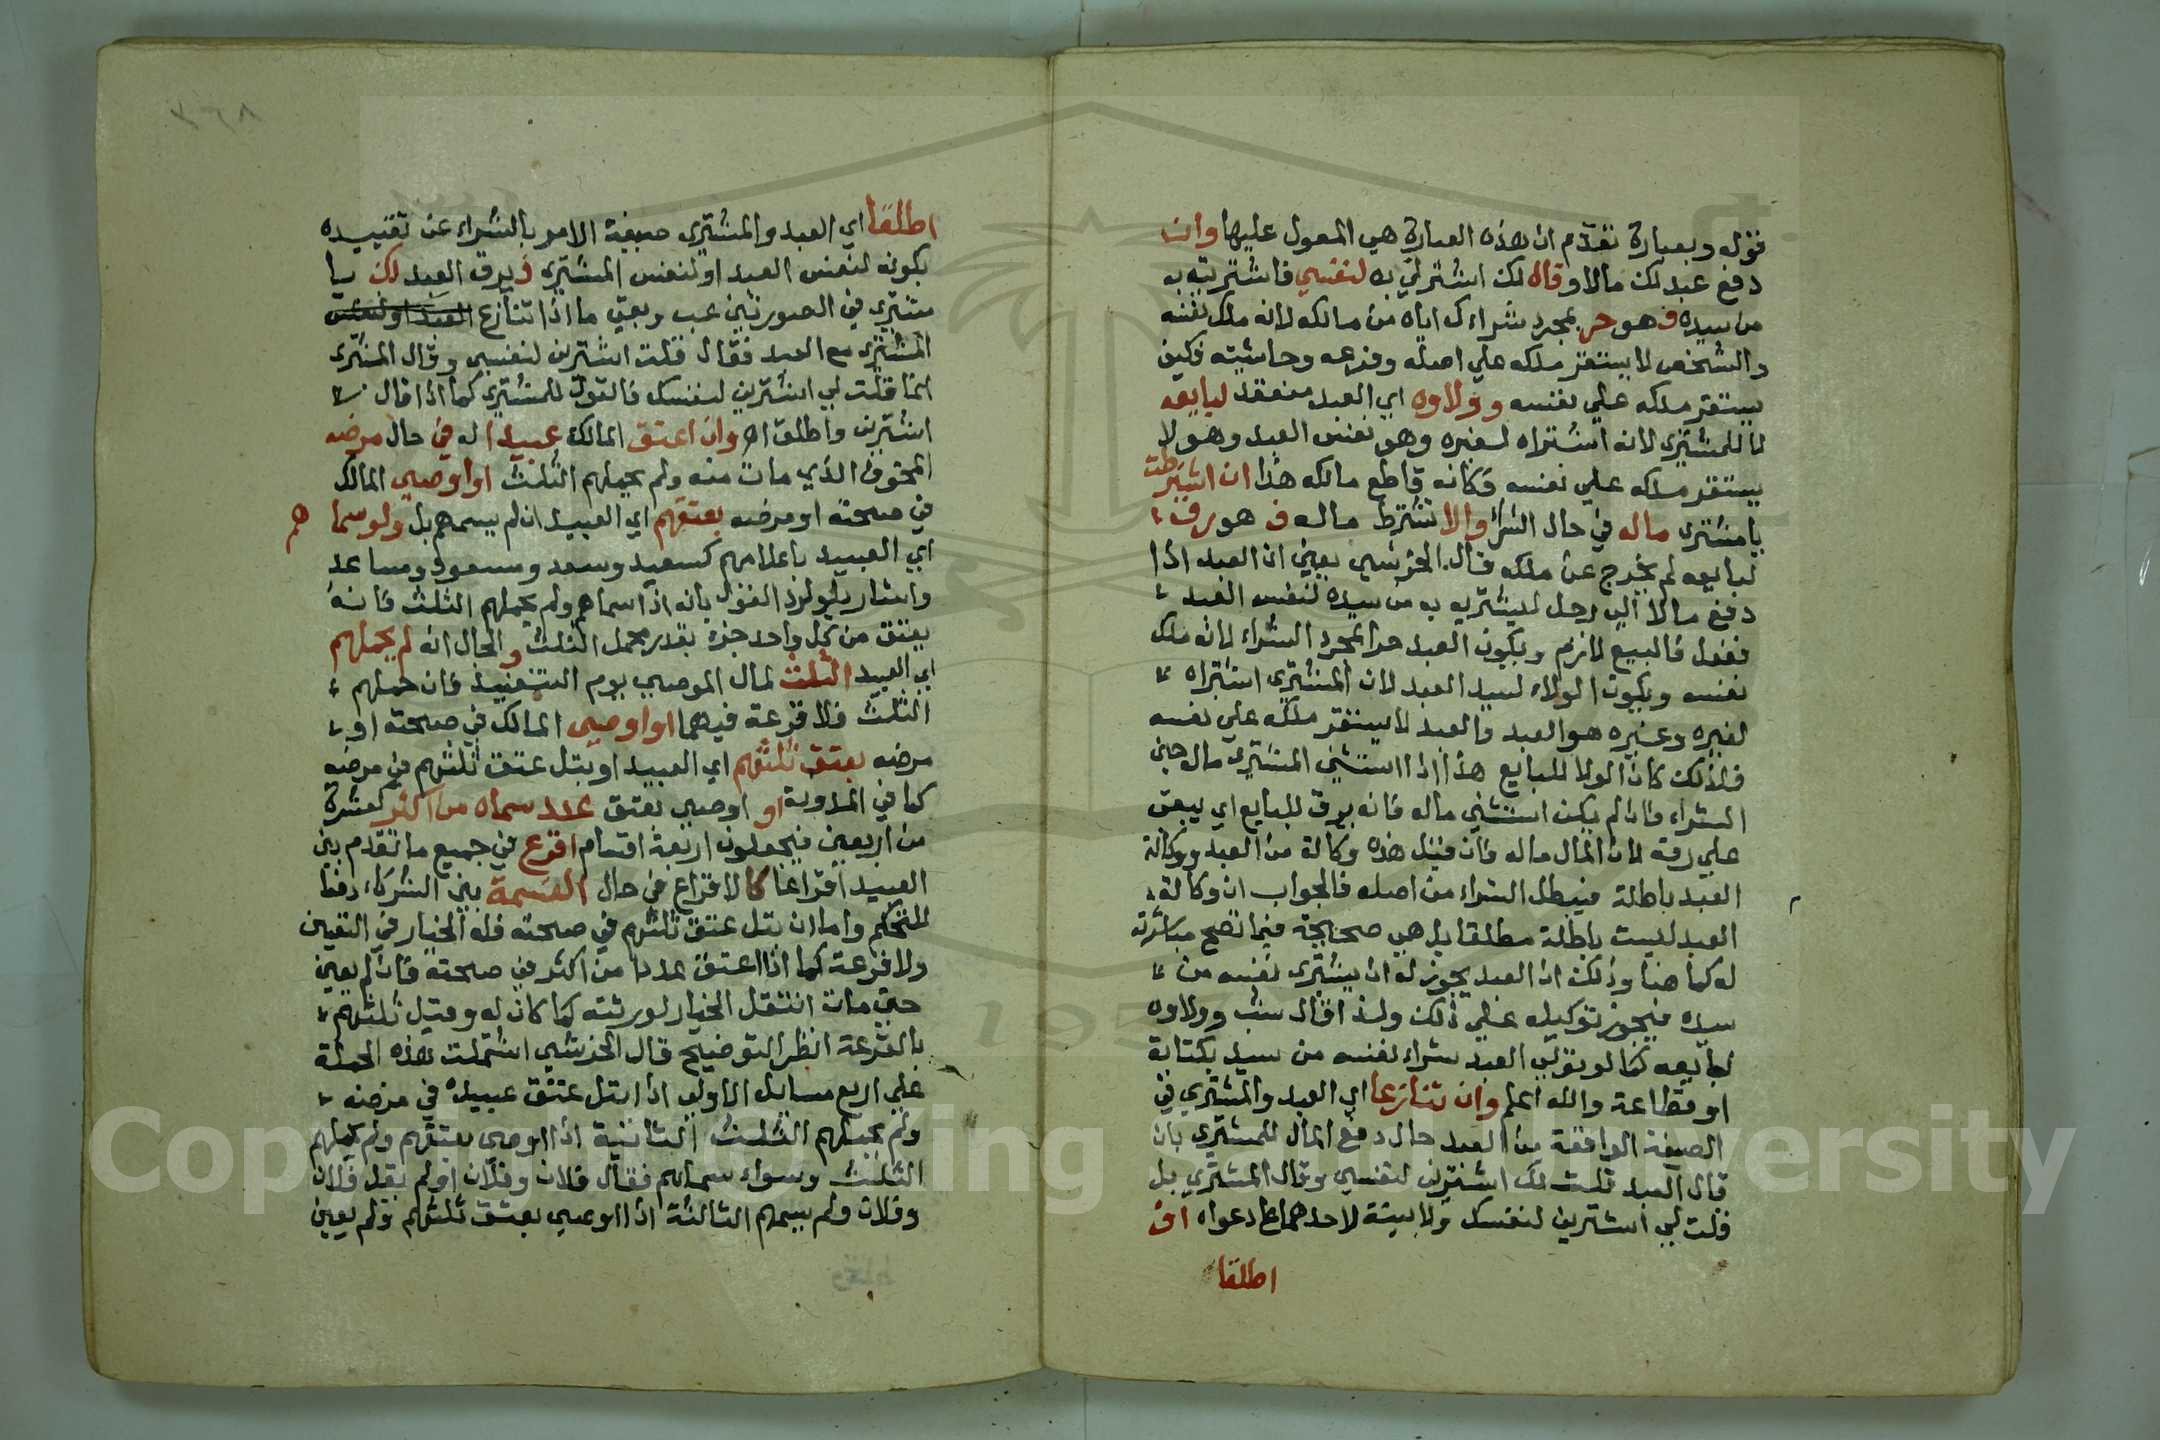 قوله وبعبارة تقدم ان هذه العبارة هي المعول عليها وان
دفع عبد لك مالا وقال لك اشترني به لنفسي فاشتريته به
من سيده فهو حر بمجرد شراءك اياه من مالكه لانه ملك نفسه
والشخص لا يستقر ملكه علي اصله وفرعه وحاشيته فكيف
يستقر ملكه علي نفسه وولاوه اي العبد منعقد لبايعه
لا للمشتري لانه اشتراه لغيره وهو نفس العبد وهو لا
يستقر ملكه علي نفسه فكانه قاطع مالكه هذا ان اشترطت
يا مشتري ماله في حال الشرا والا تشترط ماله فهو رق
لبايعه لم يخرج عن ملكه قال الخرشي يعني ان العبد اذا
دفع مالا الي رجل ليشتريه به من سيده لنفس العبد
ففعل فالبيع لازم ويكون العبد حرا بمجرد الشراء لانه ملك
نفسه ويكون الولاء لسيد العبد لان المشتري اشتراه
لغيره وغيره هو العبد والعبد لا يستقر ملكه علي نفسه
فلذلك كان الولا للبايع هذا اذا استثني المشتري ماله حين
الشراء فان لم يكن استثني ماله فانه يرق للبايع اي يبقي
علي رقه لان المال ماله فان قيل هذه وكالة من العبد ووكالة
العبد باطلة فيبطل الشراء من اصله فالجواب ان وكالة
العبد ليست باطلة مطلقا بل هي صحيحة فيما تصح مباشرته
له كما هنا وذلك ان العبد يجوز له ان يشتري نفسه من
سيده فيجوز توكيله علي ذلك ولذا قال شب وولاوه
لبايعه كما لو تولي العبد شراء نفسه من سيد بكتابة
او قطاعة والله اعلم وان تنازعا اي العبد والمشتري في
الصيغة الواقعة من العبد حال دفع المال للمشتري بان
قال العبد قلت لك اشترني لنفسي وقال المشتري بل
قلت لي اشترني لنفسك ولا بينة لاحدهما علي دعواه او
اطلقا
اطلقا اي العبد والمشتري صيغة الامر بالشراء عن تقييده
بكونه لنفس العبد او لنفس المشتري فيرق العبد لك يا
مشتري في الصورتين عب وبقي ما اذا تنازع العبد او لنفس
المشتري مع العبد فقال قلت اشترني لنفسي وقال المشتري
انما قلت لي اشترني لنفسك فالقول للمشتري كما اذا قال
اشترني واطلق اه وان اعتق المالك عبيدا له في حال مرضه
المخوف الذي مات منه ولم يحملهم الثلث او اوصي المالك
في صحته او مرضه بعتقهم اي العبيد ان لم يسمهم بل ولو سما
هم
اي العبيد باعلامهم كسعيد وسعد ومسعود ومساعد
واشار بلو لرد القول بانه اذا سماهم ولم يحملهم الثلث فانه
يعتق من كل واحد جزء بقدر محمل الثلث والحال انه لم يحملهم
اي العبيد الثلث لمال الموصي يوم التنفيذ فان حملهم
الثلث فلا قرعة فيهما او اوصي المالك في صحته او
مرضه بعتق ثلثهم اي العبيد او بتل عتق ثلثهم في مرضه
كما في المدونة او اوصي بعتق عدد سماه من اكثر كعشرة
من اربعين فيجعلون اربعة اقسام اقرع في جميع ما تقدم بين
العبيد اقراعا كالاقراع في حال القسمة بين الشركاء دفعا
للتحكم واما ان بتل عتق ثلثهم في صحته فله الخيار في التعيين
ولا قرعة كما اذا اعتق عددا من اكثر في صحته فان لم يعين
حتي مات انتقل الخيار لورثته كما كان له وقيل ثلثهم
بالقرعة انظر التوضيح قال الخرشي اشتملت هذه الجملة
علي اربع مسائل الاولي اذا بتل عتق عبيده في مرضه
ولم يحملهم الثلث الثانية اذا اوصي بعتقهم ولم يحملهم
الثلث وسواء سماهم فقال فلان وفلان او لم يقل فلان
وفلان ولم يسمهم الثالثة اذا اوصي بعتق ثلثهم ولم يعين
Copyright © King Saud University